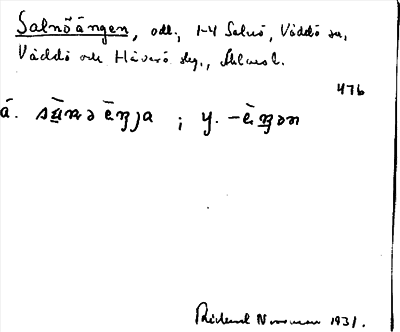 Salnöängen, odl., 1-4 Salnö, Väddö sn,
Väddö och Häverö skg., Sthms l.
476
ä. sànə ɛ̀nja ; y. -ɛ̀nən
Rickard Norrman 1931.